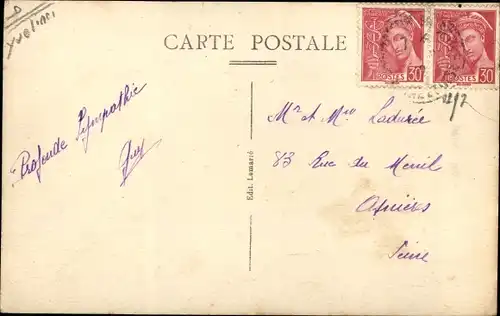 D
Yvelines
CARTE POSTALE
30
POSTES
30
POSTES
Profonde Sympathie
Mr et Mme Ladurée
83 Rue du Menil
Asnières
Seine
Edit. Lamarié